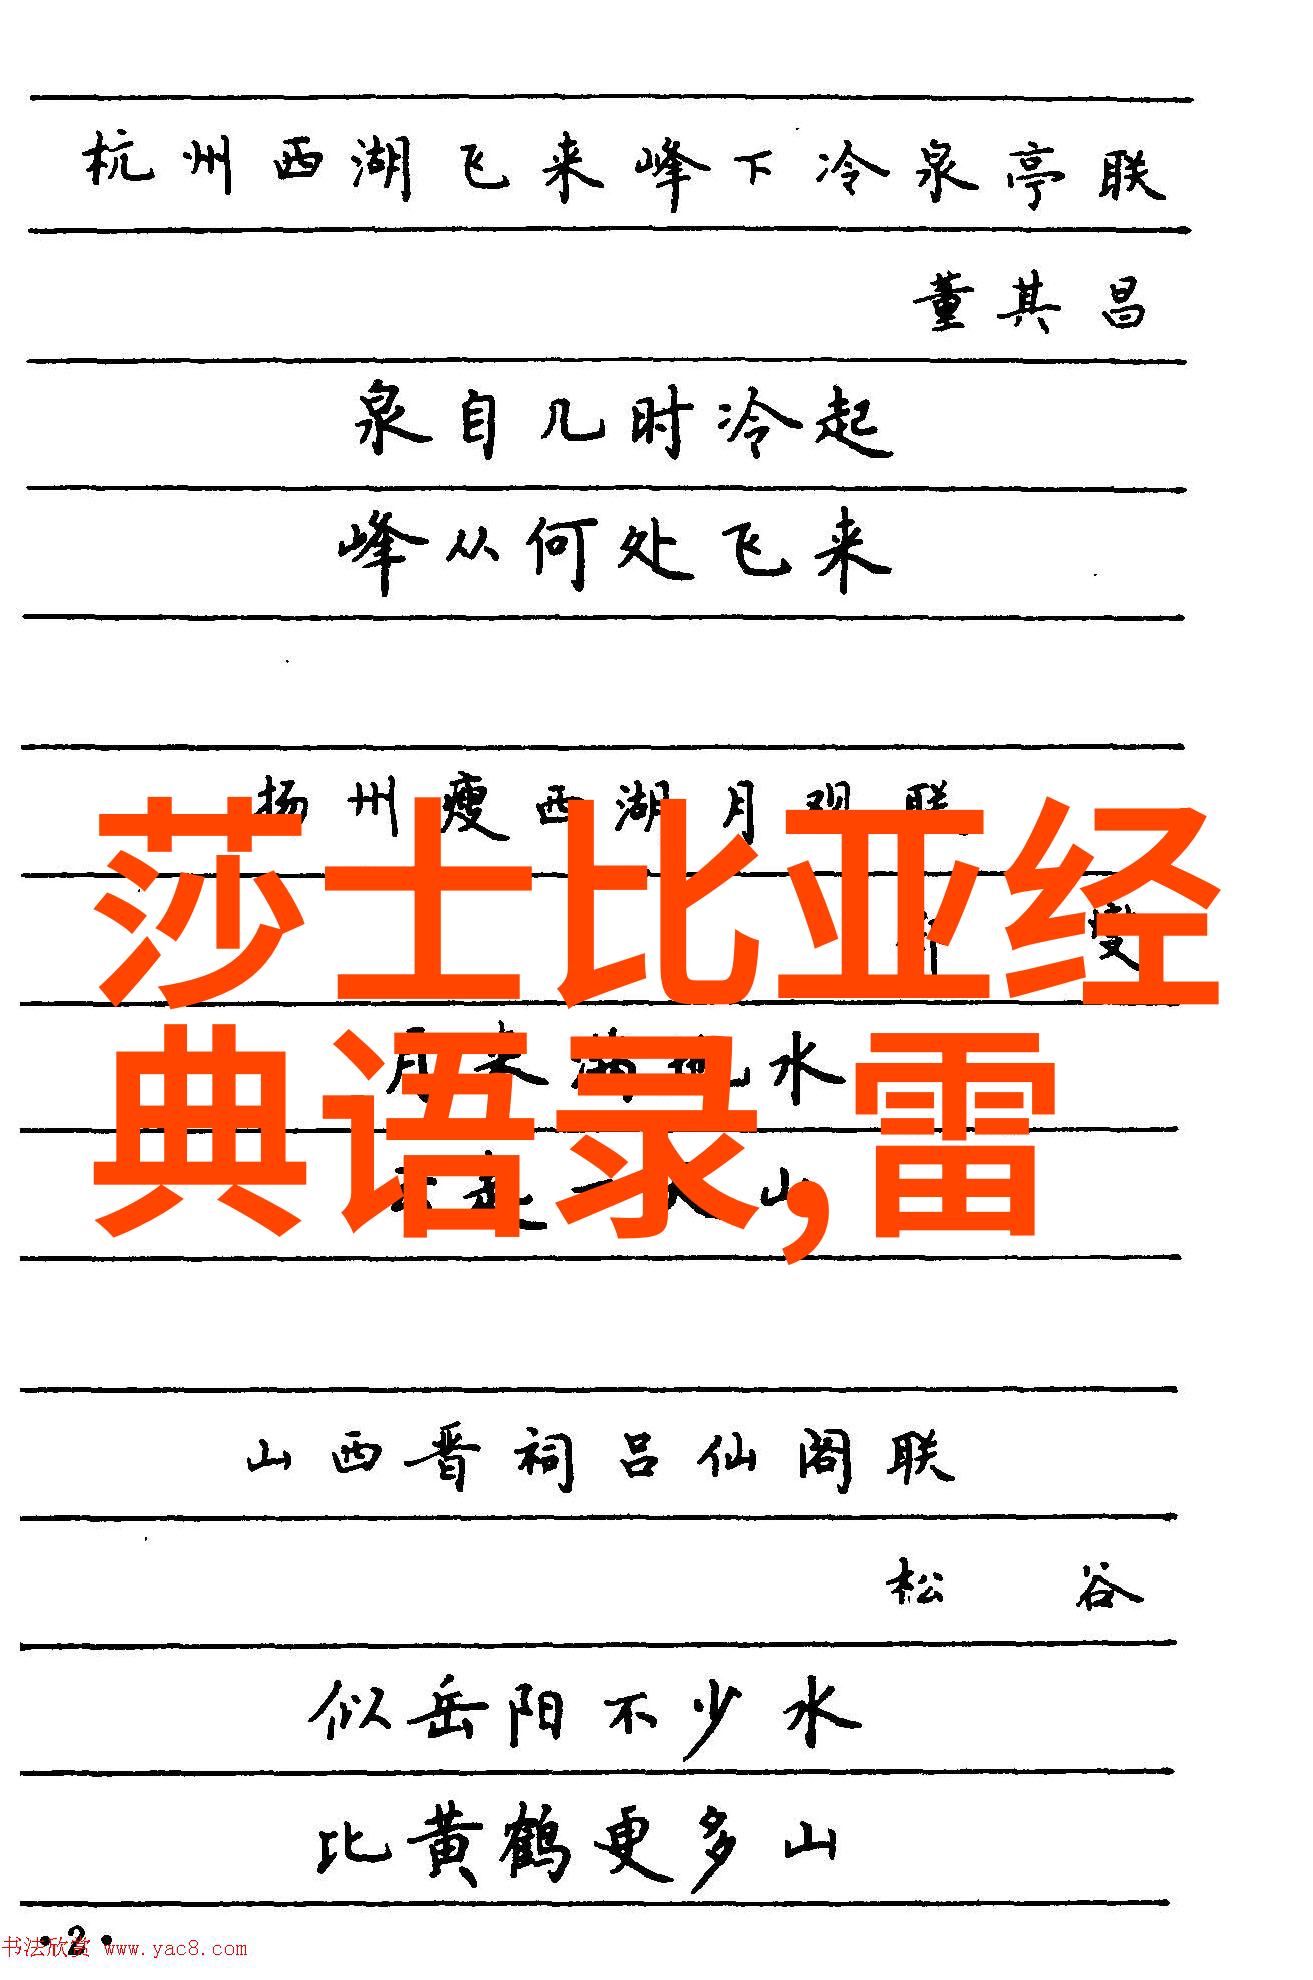 杭州西湖飞来峰下冷泉亭联
董其昌
泉自几时冷起
峰从何处飞来
扬州瘦西湖月观联
莎士比亚经
典语录,雷
月来满地水
山
山西晋祠吕仙阁联
松谷
似岳阳不少水
比黄鹤更多山
·2·
书法欣赏 www.yac8.com